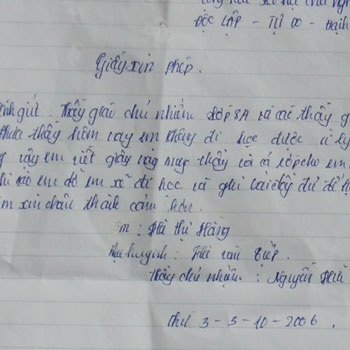 ĐỘC LẬP - TỰ DO - Hạnh
Giấy xin phép.
kính gửi : Thầy giáo chủ nhiệm lớp 8A và các thầy g
thưa thầy hôm nay em không đi học được vì lý
vậy em viết giấy này mong thầy và cả lớp cho em
em đỡ em sẽ đi học và ghi bài đầy đủ để
em xin chân thành cảm ơn.
Em : Hà Thị Hằng
Phụ huynh : Hà văn Tiếp.
Thầy chủ nhiệm : Nguyễn Hữu
Thứ 3 - 3 - 10 - 2006.